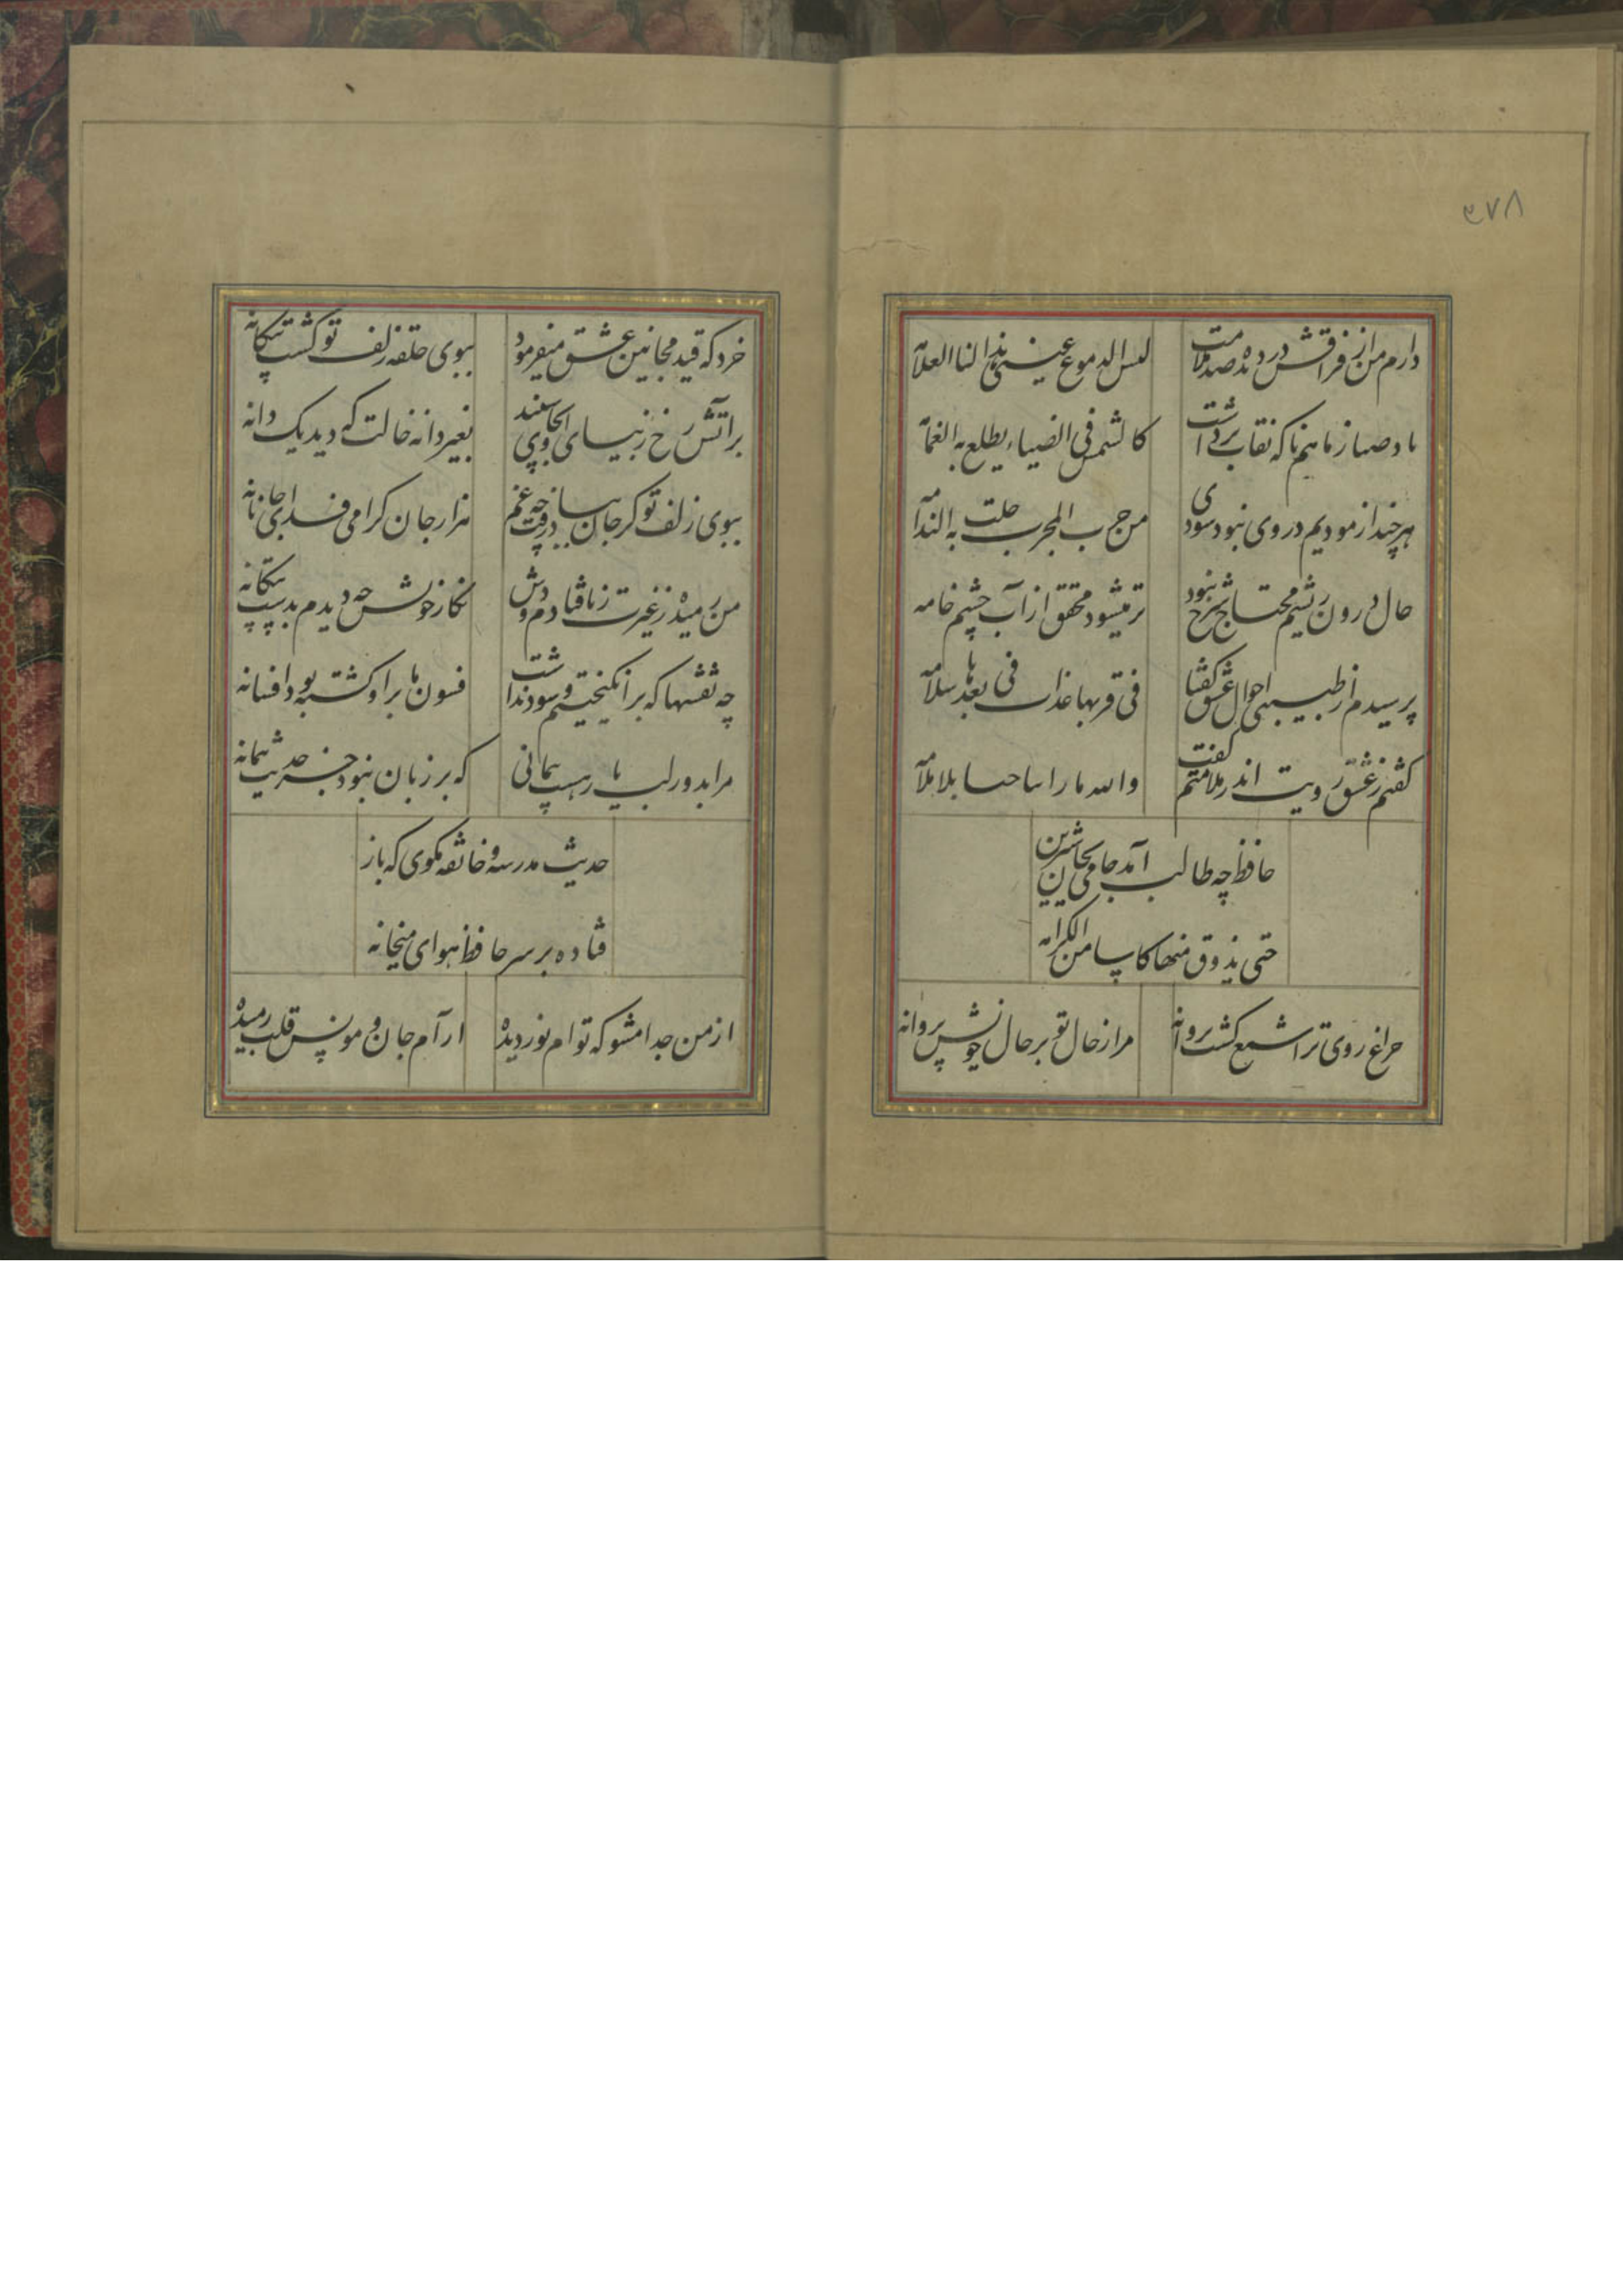 ۳۷۸
دارم من از فراقش در دیده صد ملامت لیس الدموع عینی هذا لنا العلامه
باد صبا ز ماهم ناکه نقاب برداشت کالشمس فی الضیاء یطلع به الغمامه
هر چند ازمودیم در وی نبود سودی من جرب المجرب حلت به الندامه
حال درون ریشم محتاج شرح نبود تر میشود محقق از آب چشم خامه
پرسیدم از طبیبی احوال عشق گفتا فی قربها عذاب فی بعدها سلامه
گفتم ز عشق رویت اندر ملامتم گفت والله ما راینا حبا بلا ملامه
حافظ چه طالب آمد جامی بجان شیرین
حتی یذوق منها کاسا من الکرامه
چراغ روی ترا شمع گشت پروانه مرا ز خال تو بر حال خویش پروانه
خرد که قید مجانین عشق میفرمود ببوی حلقه زلف تو گشت
بر آتش رخ زیبای او بجای سپند بغیر دانه خالت که دید یک دانه
ببوی زلف تو گر جان بباد رفت چه غم هزار جان گرامی فدای جانانه
من رمیده ز غیرت ز پا فتادم دوش نگار خویش چه دیدم بدست بیگانه
چه نقشها که برانگیختیم و سود نداشت فسون ما بر او گشته بود افسانه
مرا بدور لب یار هست پیمانی که بر زبان نبود جز حدیث پیمانه
حدیث مدرسه و خانقه مگوی که باز
فتاده بر سر حافظ هوای میخانه
از من جدا مشو که توام نور دیده ارآم جان و مونس قلب رمیده